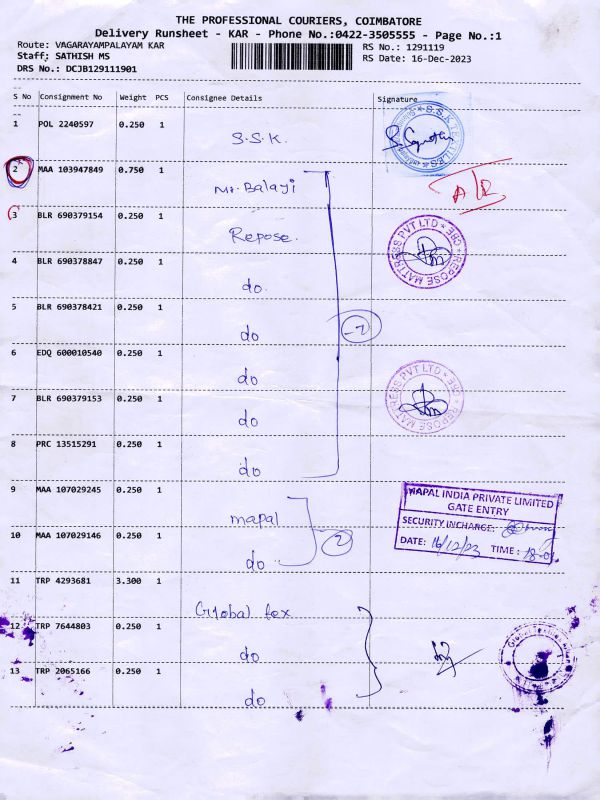 THE PROFESSIONAL COURIERS, COIMBATORE
Delivery Runsheet - KAR - Phone No.:0422-3505555 - Page No.:1
Route: VAGARAYAMPALAYAM KAR RS No.: 1291119
Staff: SATHISH MS RS Date: 16-Dec-2023
DRS No.: DCJB129111901
S No Consignment No Weight PCS Consignee Details Signature
1 POL 2240597 0.250 1 S.S.K.
2 MAA 103947849 0.750 1 Mr. Balaji
3 BLR 690379154 0.250 1 Repose.
REPOSE MATTRESS PVT LTD * CBE *
4 BLR 690378847 0.250 1 do.
5 BLR 690378421 0.250 1 do
6 EDQ 600010540 0.250 1 do
7 BLR 690379153 0.250 1 do
REPOSE MATTRESS PVT LTD * CBE *
8 PRC 13515291 0.250 1 do
9 MAA 107029245 0.250 1 mapal
MAPAL INDIA PRIVATE LIMITED
GATE ENTRY
SECURITY INCHARGE:
DATE: 16/12/23 TIME:
10 MAA 107029146 0.250 1 do
2
11 TRP 4293681 3.300 1 Global tex
12 TRP 7644803 0.250 1 do
13 TRP 2065166 0.250 1 do